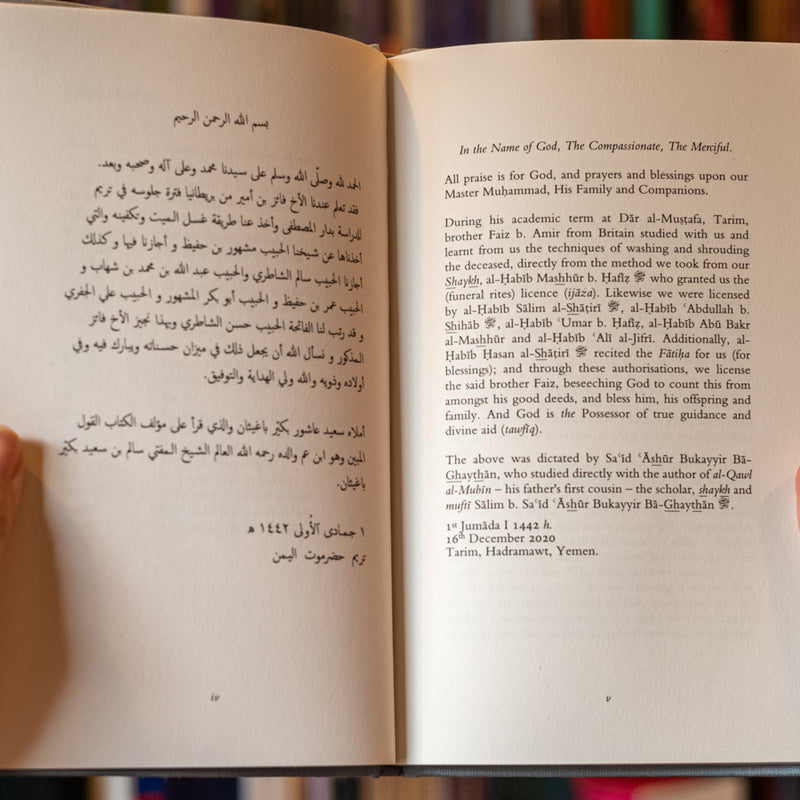 بسم الله الرحمن الرحيم
الحمد لله وصلّى الله وسلم على سيدنا محمد وعلى آله وصحبه وبعد.
فقد تعلم عندنا الأخ فائز بن أمير من بريطانيا فترة جلوسه في تريم
للدراسة بدار المصطفى وأخذ عنا طريقة غسل الميت وتكفينه والتي
أخذناها عن شيخنا الحبيب مشهور بن حفيظ و أجازنا فيها وكذلك
أجازنا الحبيب سالم الشاطري والحبيب عبد الله بن محمد بن شهاب و
الحبيب عمر بن حفيظ و الحبيب أبو بكر المشهور و الحبيب علي الجفري
و قد رتب لنا الفاتحة الحبيب حسن الشاطري وبهذا نجيز الأخ فائز
المذكور و نسأل الله أن يجعل ذلك في ميزان حسناته ويبارك فيه وفي
أولاده وذويه والله ولي الهداية والتوفيق.
أملاه سعيد عاشور بكيّر باغيثان والذي قرأ على مؤلف الكتاب القول
المبين وهو ابن عم والده رحمه الله العالم الشيخ المفتي سالم بن سعيد بكيّر
باغيثان.
١ جمادى الأولى ١٤٤٢ هـ
تريم حضرموت اليمن
iv
In the Name of God, The Compassionate, The Merciful.
All praise is for God, and prayers and blessings upon our
Master Muḥammad, His Family and Companions.
During his academic term at Dār al-Muṣṭafa, Tarim,
brother Faiz b. Amir from Britain studied with us and
learnt from us the techniques of washing and shrouding
the deceased, directly from the method we took from our
Shaykh, al-Ḥabīb Mashhūr b. Ḥafīẓ who granted us the
(funeral rites) licence (ijāza). Likewise we were licensed
by al-Ḥabīb Sālim al-Shāṭirī, al-Ḥabīb ʿAbdullah b.
Shihāb, al-Ḥabīb ʿUmar b. Ḥafīẓ, al-Ḥabīb Abū Bakr
al-Mashhūr and al-Ḥabīb ʿAlī al-Jifrī. Additionally, al-
Ḥabīb Ḥasan al-Shāṭirī recited the Fātiḥa for us (for
blessings); and through these authorisations, we license
the said brother Faiz, beseeching God to count this from
amongst his good deeds, and bless him, his offspring and
family. And God is the Possessor of true guidance and
divine aid (tawfīq).
The above was dictated by Saʿīd ʿĀshūr Bukayyir Bā-
Ghaythān, who studied directly with the author of al-Qawl
al-Mubīn – his father's first cousin – the scholar, shaykh and
muftī Sālim b. Saʿīd ʿĀshūr Bukayyir Bā-Ghaythān.
1st Jumāda I 1442 h.
16th December 2020
Tarim, Hadramawt, Yemen.
v